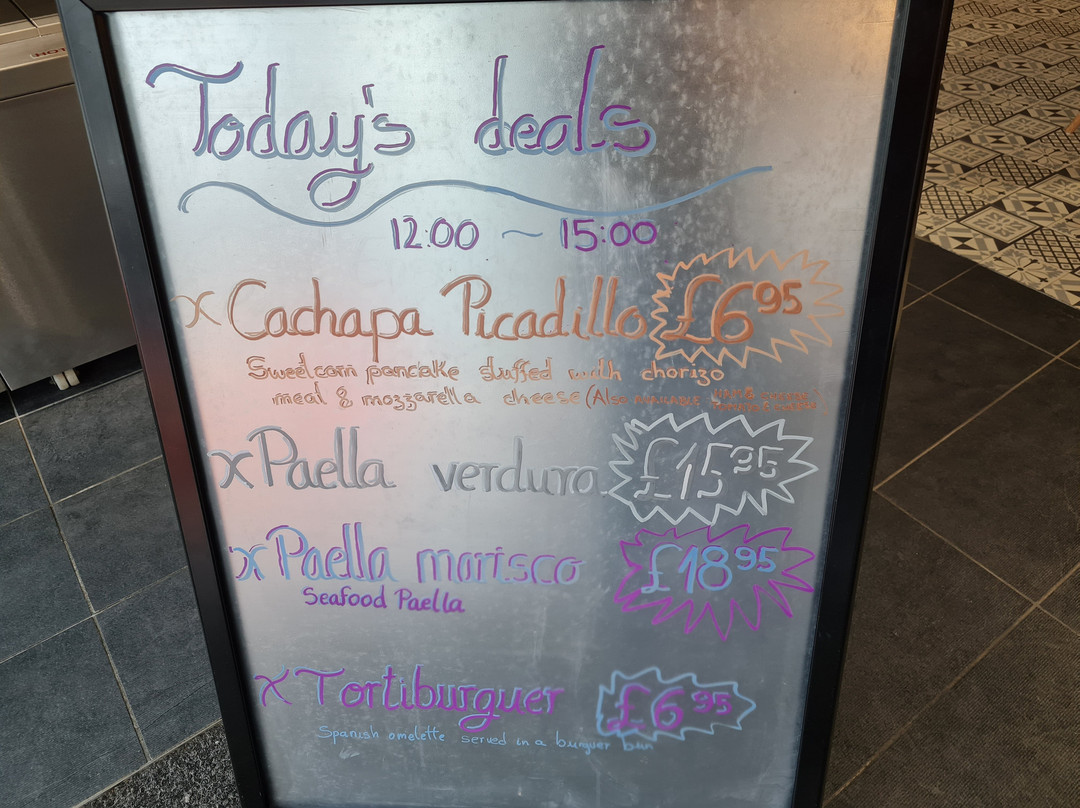 Today's deals
12:00 ~ 15:00
x Cachapa Picadillo £6.95
Sweetcorn pancake stuffed with chorizo
meal & mozzarella cheese (Also AVAILABLE
x Paella verdura £15.95
x Paella marisco £18.95
Seafood Paella
x Tortiburguer £6.95
Spanish omelette served in a burguer bun
HOT